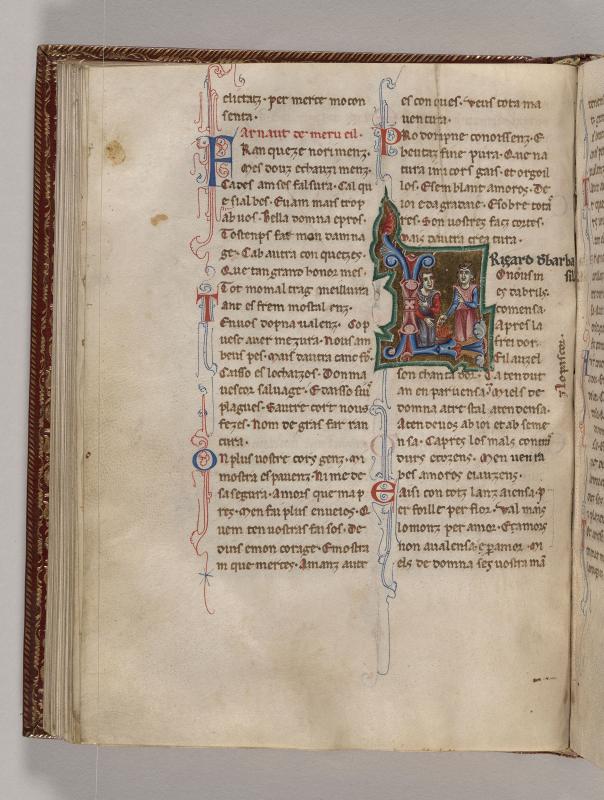 clietatz · per merce mo con
senta ·
arnaut de merueil ·
FRan queze norimenz ·
Mes douz echauzi menz ·
E sial bes · Euam mais trop
ab uos · Bella domna epros ·
Tostemps fai mon damna
ge · Cab autra con quezes ·
Que tan gran ro honoz mes ·
Tot mo mal trag meillura
Tant es frem mostal enz ·
Enuos dopna ualenz · Cop
uesc auer mezura · Nous am
Don ma
uescor saluage · Edaisso
plagues · Sautre cort nous
fezes · Nom de gras far ran
cura ·
On plus uostre cors genz · mi
mostra espauenz · Ni me de
sasegura · Amors que ma p
res · Men fai plus enueios · Q
uem ten uostras faisos · De
duis emon corage · Emostra
m que merces · Amanz aut
es con ques · Veus tota ma
uentura ·
PRo dompne conoissenz · E
beutaz fine pura · Que na
tura mi cors gais · et orgoil
los · Esem blant amoros · De
ioi eda gradatge · Esobre tota
res · Son uostres faz cortes ·
Mais dautra crea tura ·
Rigard dbarba
sill
LOnois in
es dabrils ·
comensa ·
Apres la
frei dor ·
Eil auzel
son chanta dor · Ca ten dut
an en paruensa · Miels de
domna atre stal atendensa ·
Aten deuos ab ioi et ab seme
nsa · Capres los mals
durs crozens · Men uenra
bes amores eiauzens ·
EAisi con totz lanz aiensa · p
er foille per flor · Val mais
lo monz per amor · E samors
non aualensa · per amor · mi
els de domna ses uostra ma